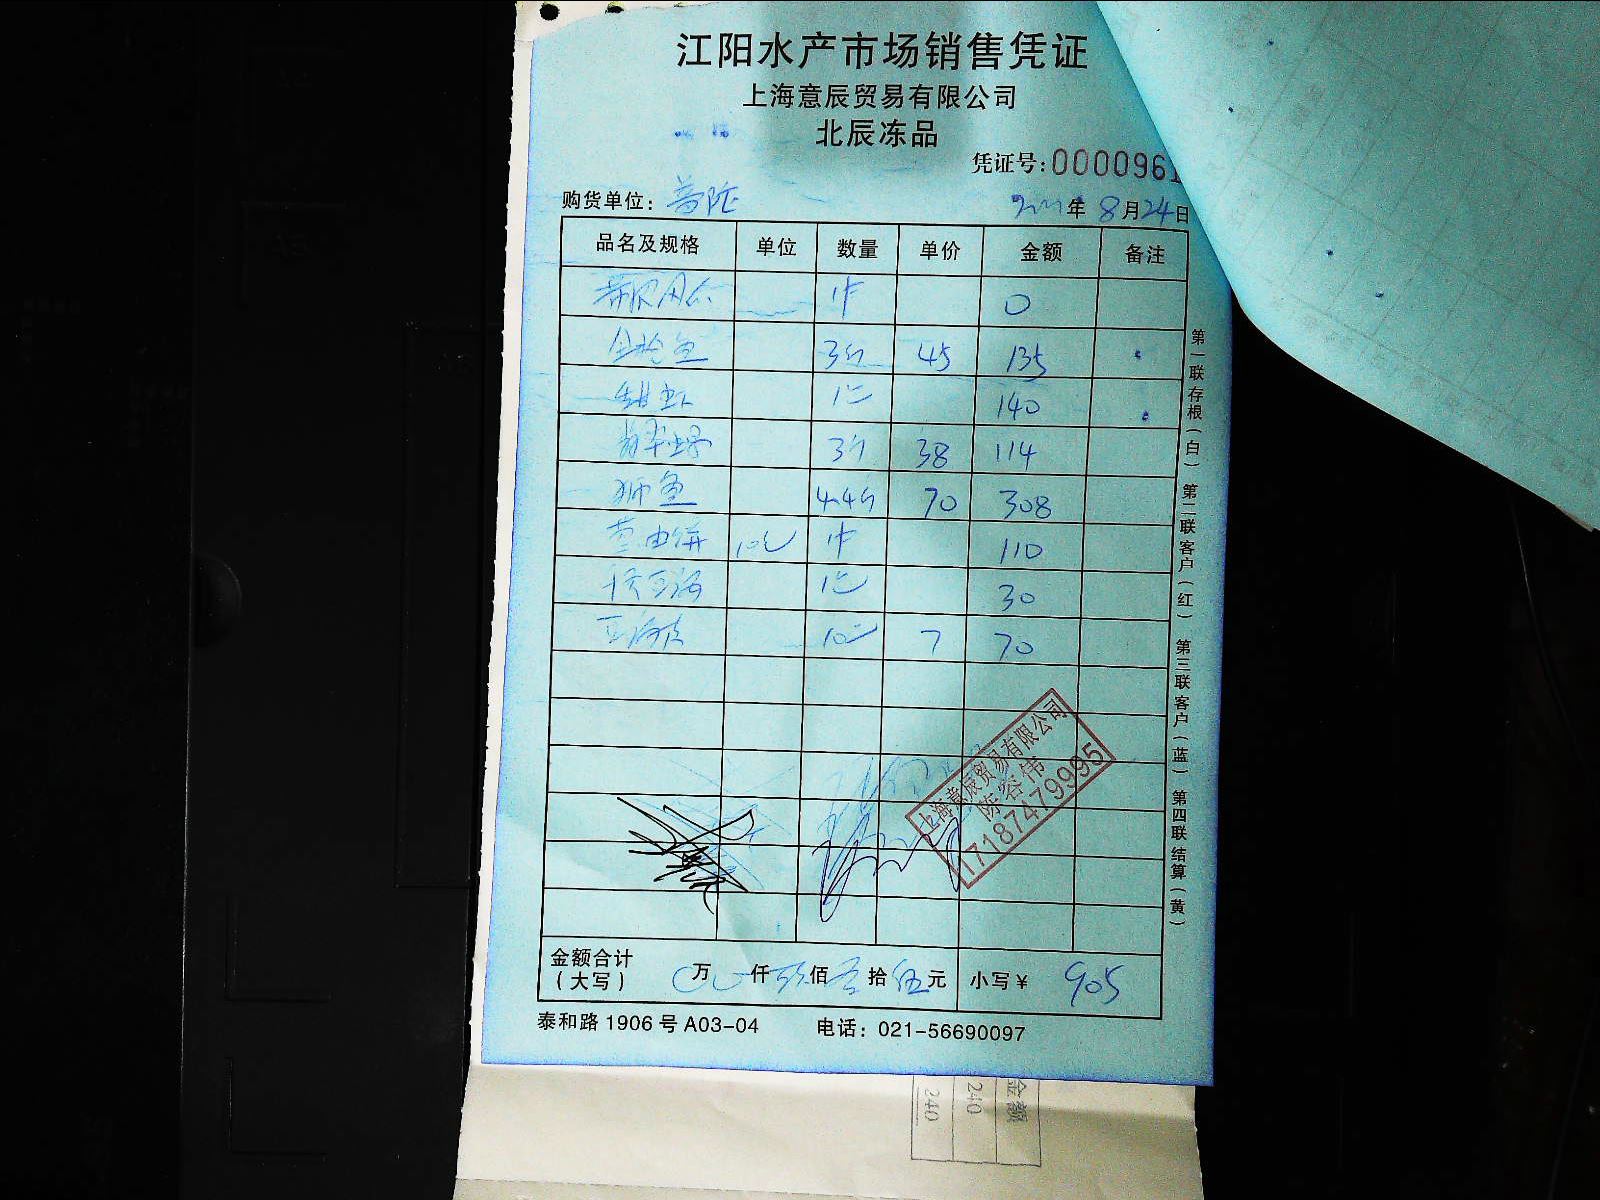 江阳水产市场销售凭证
上海意辰贸易有限公司
北辰冻品
凭证号:0000961
购货单位: 普陀 年 8月24日
品名及规格 单位 数量 单价 金额 备注
1件 0
金枪鱼 3斤 45 135
甜虾 1 140
3斤 38 114
狮鱼 4.4斤 70 308
葱油饼 10 1件 110
1 30
10 7 70
上海意辰贸易有限公司
陈容伟
17187479995
金额合计(大写) 万 仟 玖佰 零拾 伍元 小写¥ 905
泰和路1906号A03-04 电话:021-56690097
第一联存根(白) 第二联客户(红) 第三联客户(蓝) 第四联结算(黄)
金额
240
240